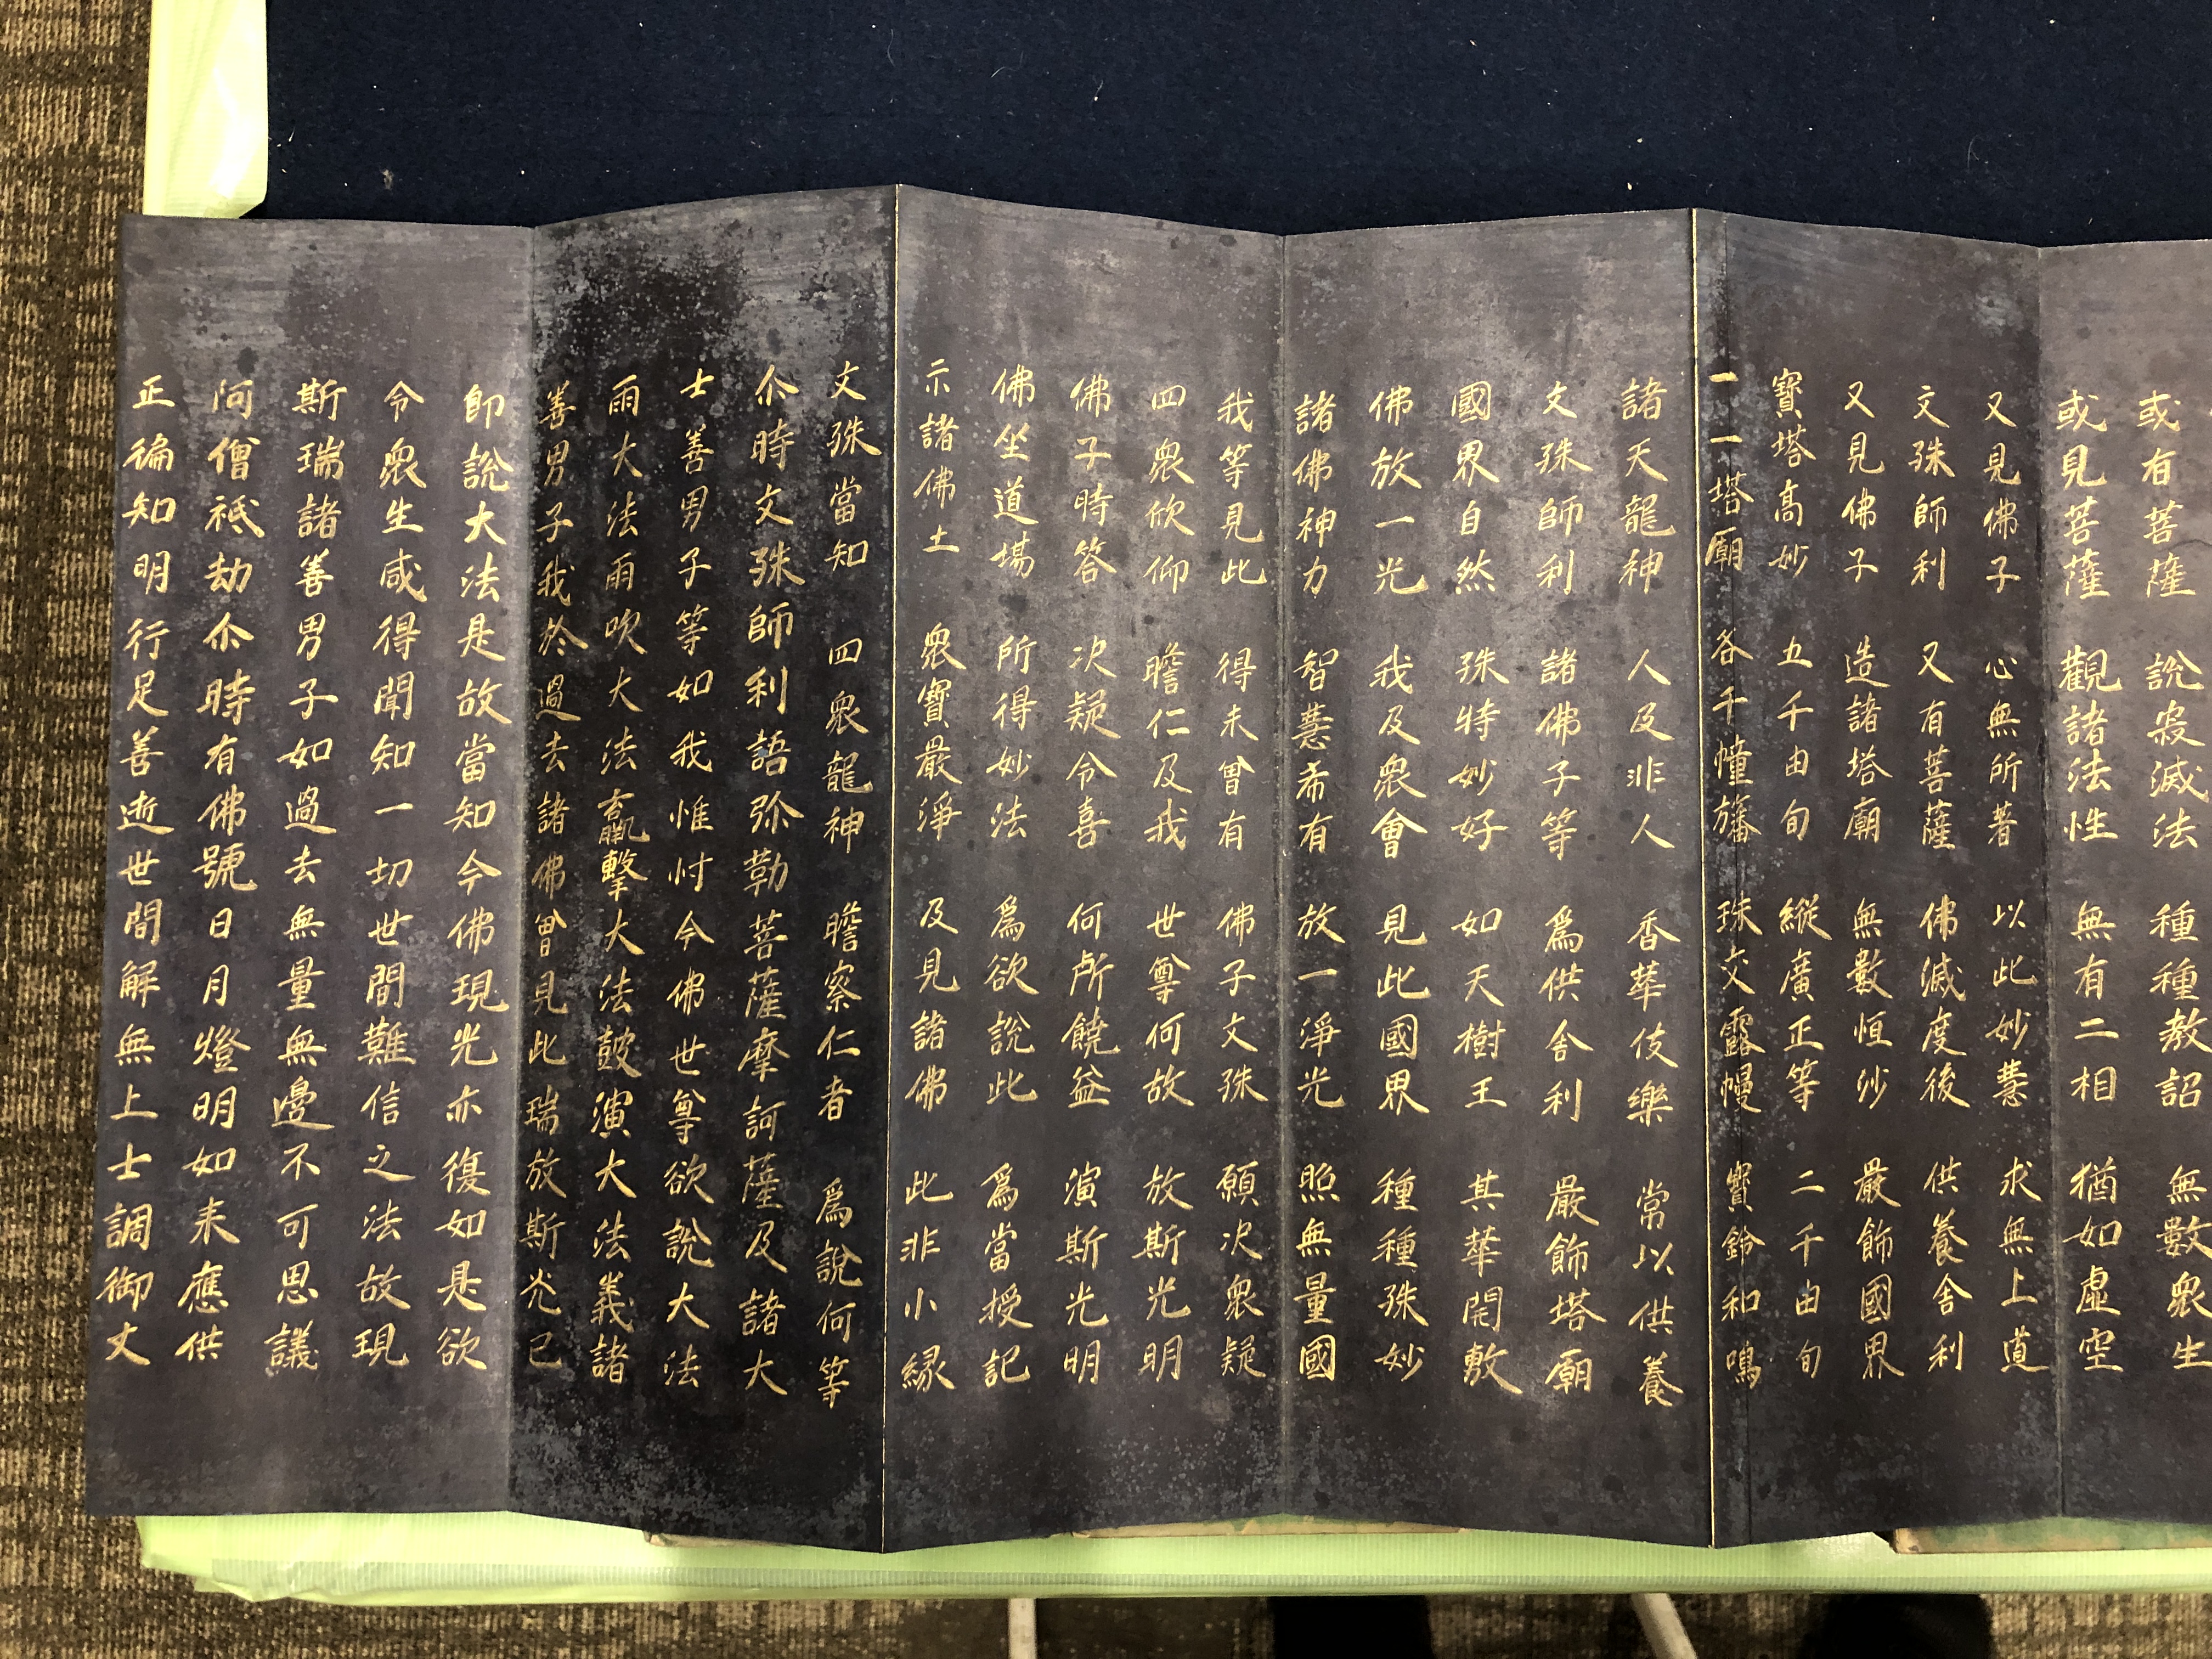 或有菩薩 說寂滅法 種種教詔 無數眾生
或見菩薩 觀諸法性 無有二相 猶如虛空
又見佛子 心無所著 以此妙慧 求無上道
文殊師利 又有菩薩 佛滅度後 供養舍利
又見佛子 造諸塔廟 無數恒沙 嚴飾國界
寶塔高妙 五千由旬 縱廣正等 二千由旬
一一塔廟 各千幢旛 珠交露幔 寶鈴和鳴
諸天龍神 人及非人 香華伎樂 常以供養
文殊師利 諸佛子等 為供舍利 嚴飾塔廟
國界自然 殊特妙好 如天樹王 其華開敷
佛放一光 我及眾會 見此國界 種種殊妙
諸佛神力 智慧希有 放一淨光 照無量國
我等見此 得未曾有 佛子文殊 願決眾疑
四眾欣仰 瞻仁及我 世尊何故 放斯光明
佛子時答 決疑令喜 何所饒益 演斯光明
佛坐道場 所得妙法 為欲說此 為當授記
示諸佛土 眾寶嚴淨 及見諸佛 此非小緣
文殊當知 四眾龍神 瞻察仁者 為說何等
尒時文殊師利語弥勒菩薩摩訶薩及諸大
士善男子等如我惟忖今佛世尊欲說大法
雨大法雨吹大法蠃擊大法鼓演大法義諸
善男子我於過去諸佛曾見此瑞放斯光已
即說大法是故當知今佛現光亦復如是欲
令眾生咸得聞知一切世間難信之法故現
斯瑞諸善男子如過去無量無邊不可思議
阿僧祇劫尒時有佛號日月燈明如来應供
正徧知明行足善逝世間解無上士調御丈